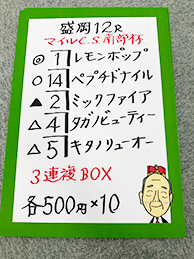 盛岡12R
マイルC.S.南部杯
◎ 1 レモンポップ
○ 14 ペプチドナイル
▲ 2 ミックファイア
△ 4 タガノビューティー
△ 5 キタノリューオー
3連複BOX
各500円×10